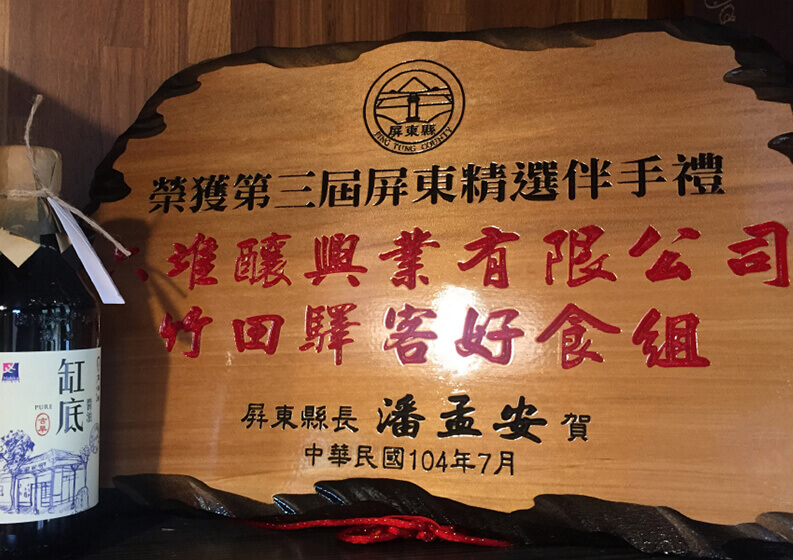 屏東縣
PING TUNG COUNTY
榮獲第三屆屏東精選伴手禮
六堆釀興業有限公司
竹田驛客好食組
屏東縣長 潘孟安 賀
中華民國104年7月
缸底
PURE